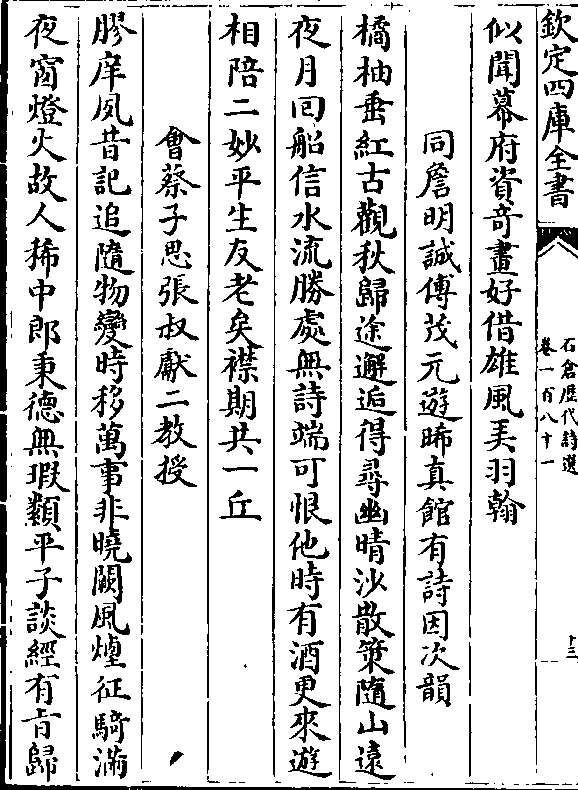 欽定四庫全書
石倉歷代詩選
卷一百八十一
十三
似聞幕府資奇畫好借雄風奉羽翰
同詹明誠傅茂元遊晞真館有詩因次韻
橘柚垂紅古觀秋歸途邂逅得尋幽晴沙散策隨山遠
夜月囘船信水流勝處無詩端可恨他時有酒更來遊
相陪二妙平生友老矣襟期共一丘
會蔡子思張叔獻二教授
膠庠夙昔記追隨物變時移萬事非曉闕風煙征騎滿
夜窗燈火故人稀中郎秉德無瑕纇平子談經有㫖歸